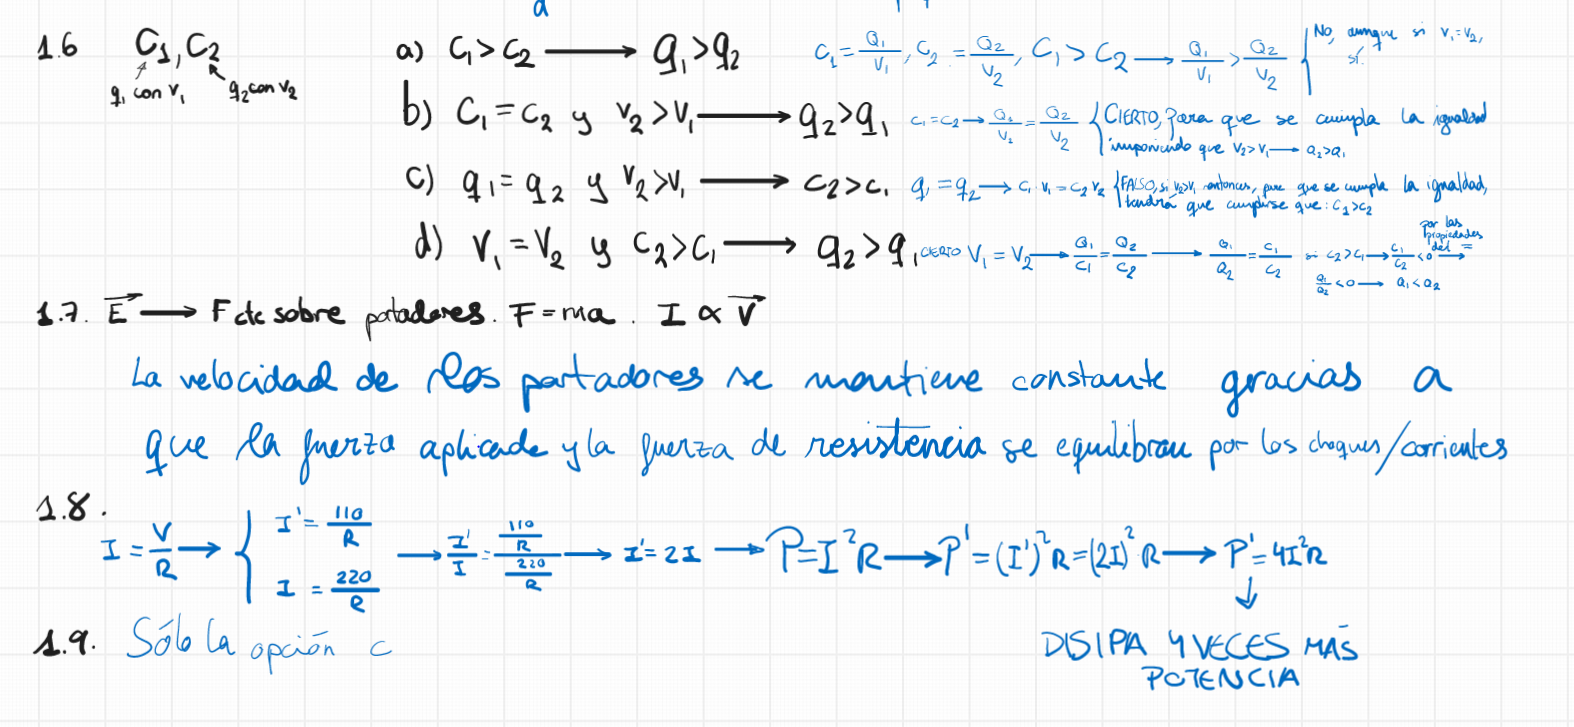 a
1.6 C₁, C₂
q₁ con v₁ q₂ con v₂
a) C₁ > C₂ → q₁ > q₂ C₁ = Q₁/V₁, C₂ = Q₂/V₂, C₁ > C₂ → Q₁/V₁ > Q₂/V₂ { No, aunque si V₁ = V₂, sí.
b) C₁ = C₂ y V₂ > V₁ → q₂ > q₁ C₁ = C₂ → Q₁/V₁ = Q₂/V₂ { CIERTO, Para que se cumpla la igualdad
imponiendo que V₂ > V₁ → Q₂ > Q₁
c) q₁ = q₂ y V₂ > V₁ → C₂ > C₁ q₁ = q₂ → C₁ V₁ = C₂ V₂ { FALSO, si V₂ > V₁ entonces, para que se cumpla la igualdad,
tendrá que cumplirse que: C₁ > C₂
d) V₁ = V₂ y C₂ > C₁ → q₂ > q₁ CIERTO V₁ = V₂ → Q₁/C₁ = Q₂/C₂ → Q₁/Q₂ = C₁/C₂ si C₂ > C₁ → C₁/C₂ < 0 → por las propiedades del =
Q₁/Q₂ < 0 → Q₁ < Q₂
1.7. E⃗ → F cte sobre portadores. F = ma. I ∝ V⃗
La velocidad de los portadores se mantiene constante gracias a
que la fuerza aplicada y la fuerza de resistencia se equilibran por los choques/corrientes
1.8.
I = V/R → { I' = 110/R I = 220/R → I'/I = (110/R)/(220/R) → I' = 2I → P = I²R → P' = (I')²R = (2I)²R → P' = 4I²R
↓
DISIPA 4 VECES MÁS
POTENCIA
1.9. Sólo la opción c